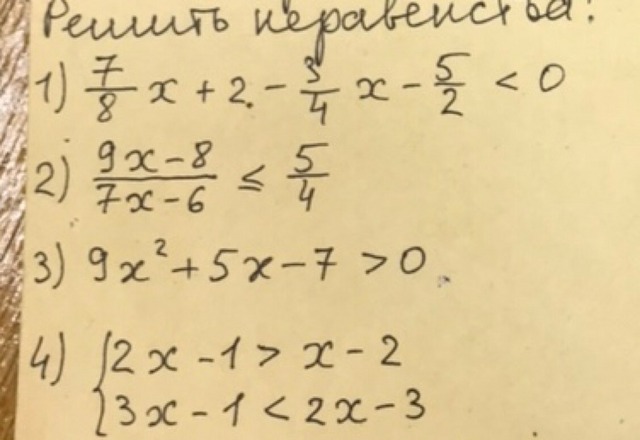 Решить неравенства:
1) 7/8 x + 2 - 3/4 x - 5/2 < 0
2) (9x-8)/(7x-6) ≤ 5/4
3) 9x² + 5x - 7 > 0
4) { 2x - 1 > x - 2
{ 3x - 1 < 2x - 3